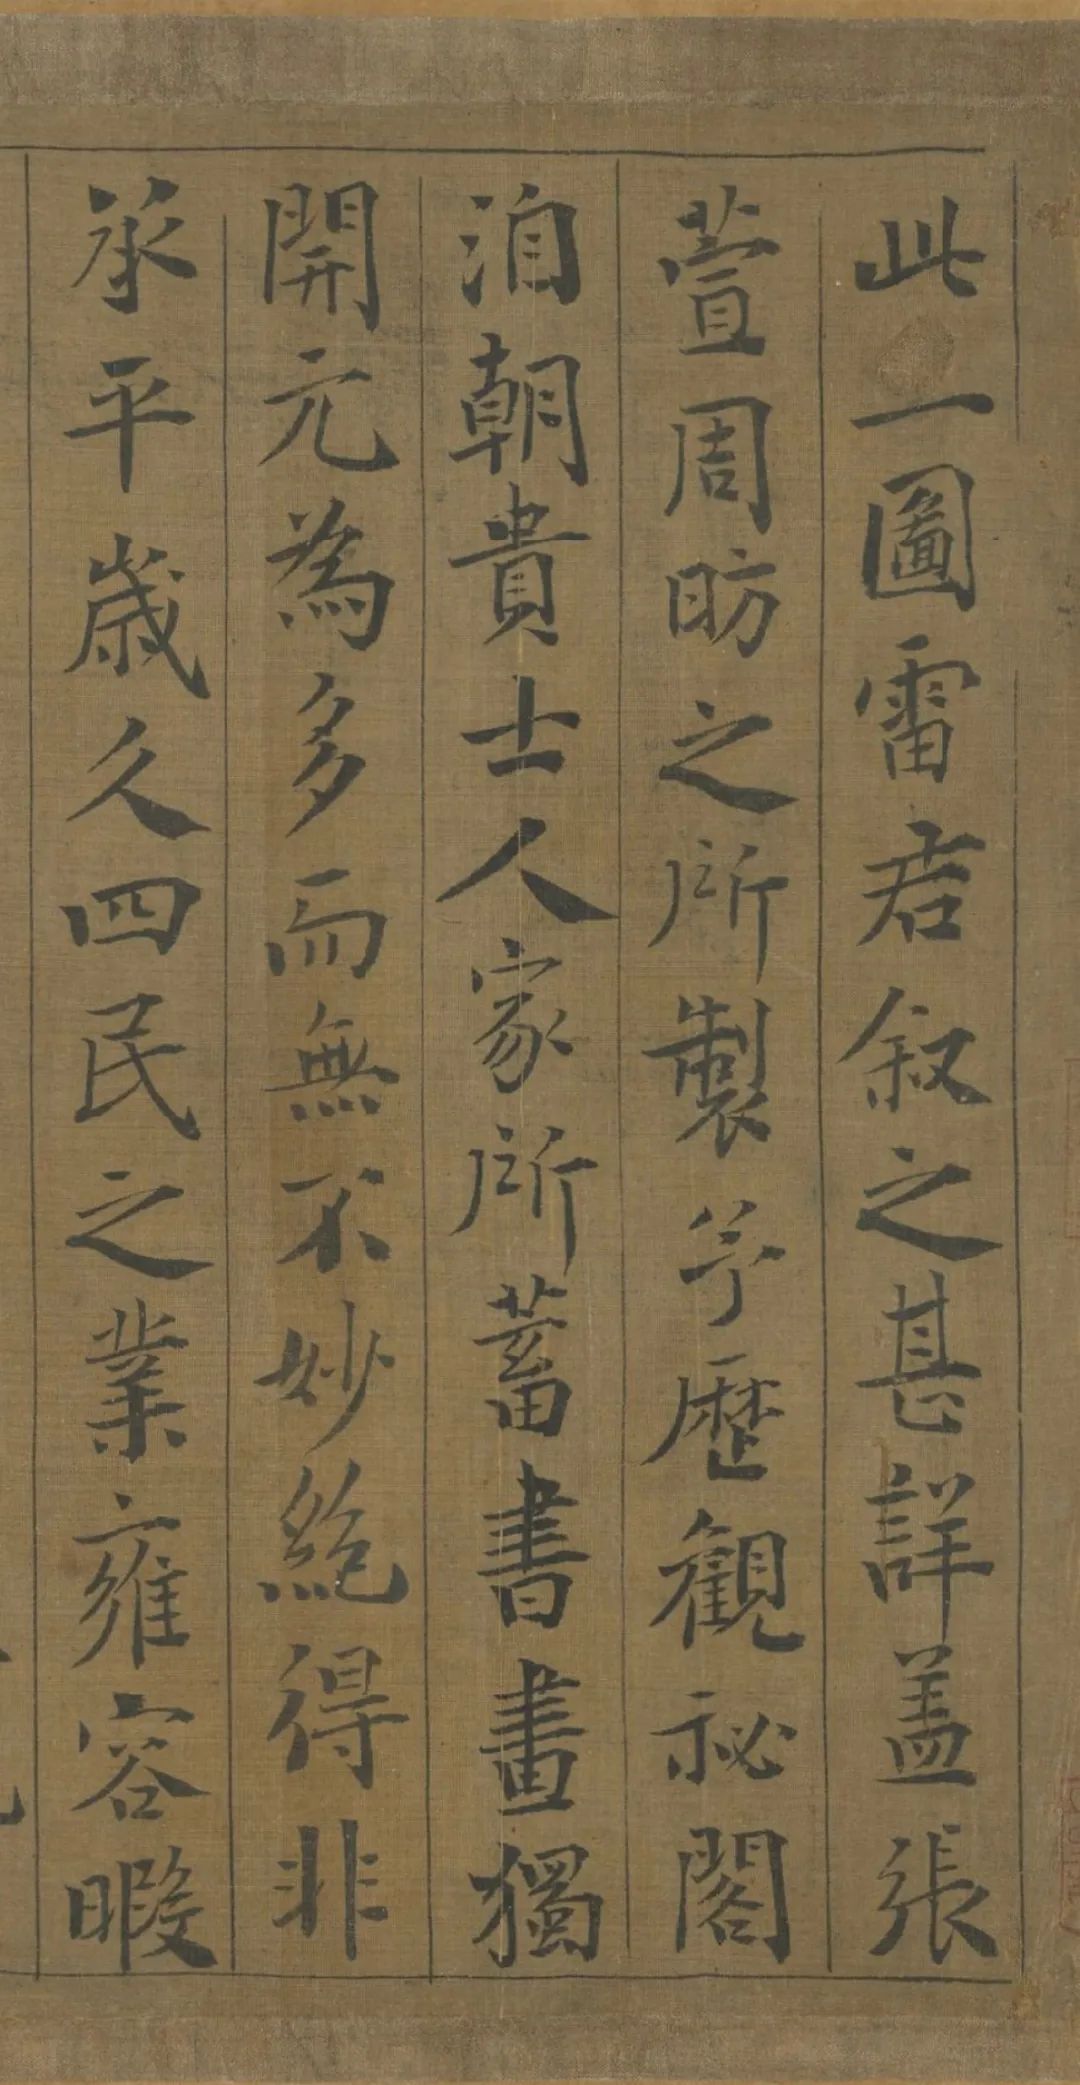 此一圖雷君叙之甚詳盖張
萱周昉之所製兮歷觀祕閣
洎朝貴士人家所蓄書畫獨
開元為多而無不妙絶得非
承平歲久四民之業雍容暇